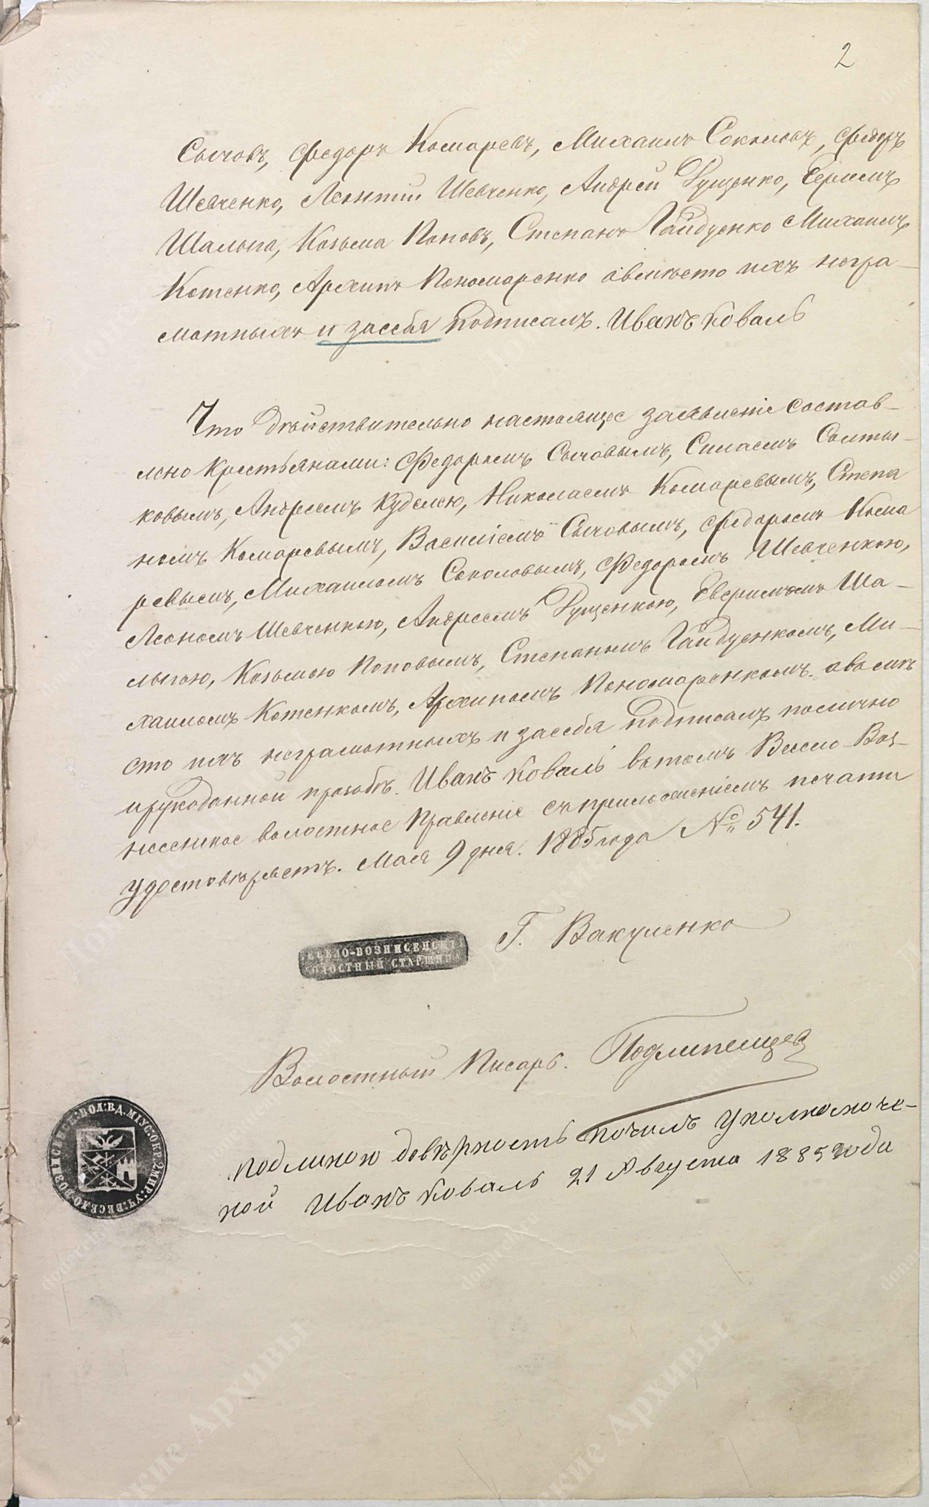 2
Сычовъ, Федоръ Комаревъ, Михаилъ Соколовъ, Федоръ
Шевченко, Леонтій Шевченко, Андрей Гущенко,
Шалыга, Козьма Поповъ, Степанъ Гайдуенко Михаилъ
Котенко, Архипъ Пономаренко авместо ихъ негра-
мотныхъ и засебя подписалъ. Иванъ Коваль
Что действительно настоящее заявленіе состав-
лено крестьянами: Федоромъ Сычовымъ, Силаемъ Салты-
ковымъ, Андреемъ Куделею, Николаемъ Комаревымъ, Степа
номъ Комаревымъ, Василіемъ Сычовымъ, Федоромъ Кома
ревымъ, Михаиломъ Соколовымъ, Федоромъ Шевченкою,
Леономъ Шевченкою, Андреемъ Гущенкою, Ша-
лыгою, Козьмою Поповымъ, Степаномъ Гайдуенкомъ, Ми-
хаиломъ Котенкомъ, Архипомъ Пономаренкомъ авмѣ
сто ихъ неграмотныхъ и засебя подписалъ полично
ирукоданной прозьбѣ. Иванъ Коваль вътомъ Весело Воз-
несенское волостное Правленіе съприложеніемъ печати
удостовѣряетъ. Мая 9 дня. 1885 года № 541.
Г. Вакуленко
ВЕСЕЛО-ВОЗНИСЕНСКІЙ
ВОЛОСТНЫЙ СТАРШИНА
Волостный Писарь.
подлиною довѣрность получилъ уполномоче-
ной Иванъ Коваль 21 Августа 1885 года
Архивы